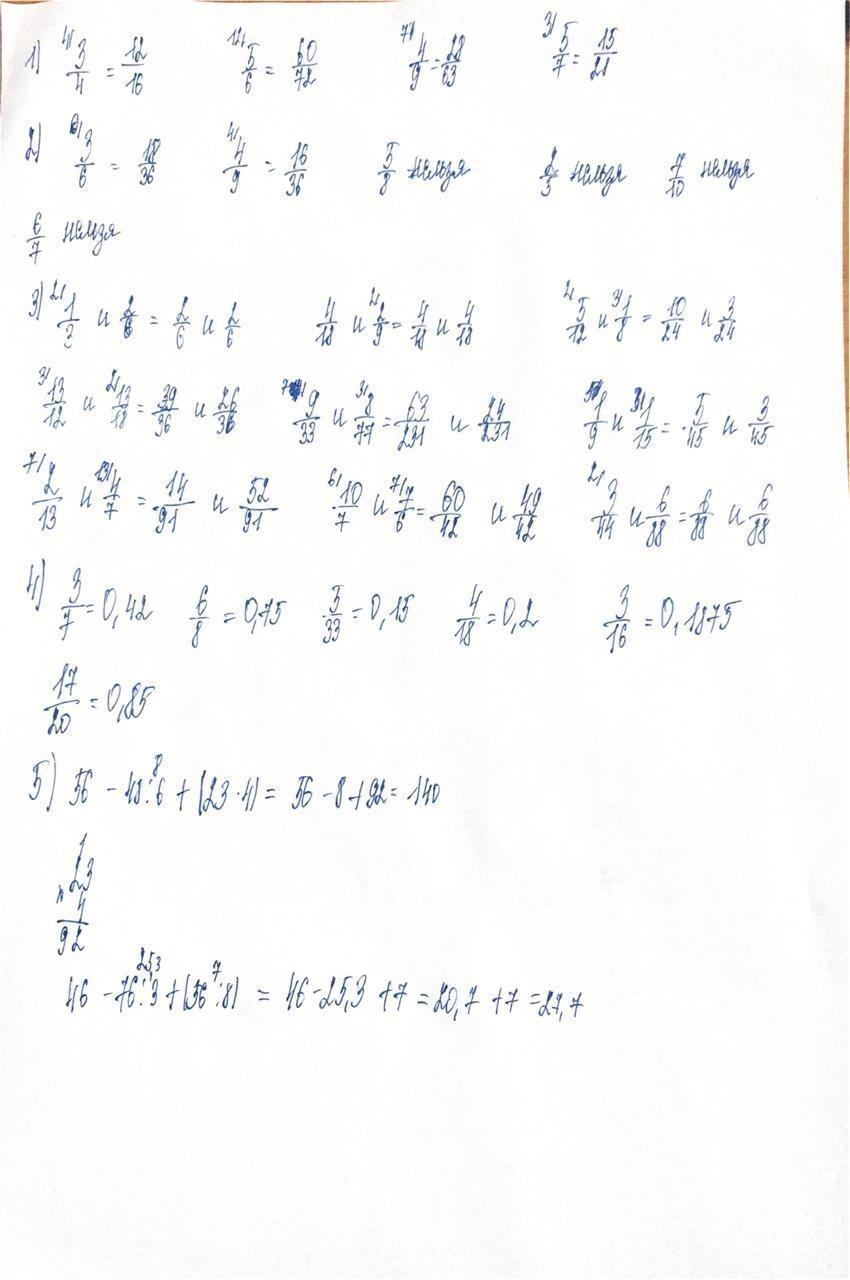 1) 4/ 3/4 = 12/16 12/ 5/6 = 60/72 7/ 4/9 = 28/63 3/ 5/7 = 15/21
2) 6/ 3/6 = 18/36 4/ 4/9 = 16/36 5/8 нельзя 2/5 нельзя 7/10 нельзя
6/7 нельзя
3) 2/ 1/3 и 2/6 = 2/6 и 2/6 4/18 и 2/ 2/9 = 4/18 и 4/18 2/ 5/12 и 3/ 1/8 = 10/24 и 3/24
3/ 13/12 и 2/ 13/18 = 39/36 и 26/36 7/ 9/33 и 3/ 8/77 = 63/231 и 24/231 5/ 1/9 и 3/ 1/15 = 5/45 и 3/45
7/ 2/13 и 13/ 4/7 = 14/91 и 52/91 6/ 10/7 и 7/ 7/6 = 60/42 и 49/42 2/ 3/44 и 6/88 = 6/88 и 6/88
4) 3/7 = 0,42 6/8 = 0,75 5/33 = 0,15 4/18 = 0,2 3/16 = 0,1875
17/20 = 0,85
5) 56 - 48:6 + (23·4) = 56 - 8 + 92 = 140
8
1
23
4
92
25,3 7
46 - 76:3 + (56:8) = 46 - 25,3 + 7 = 20,7 + 7 = 27,7